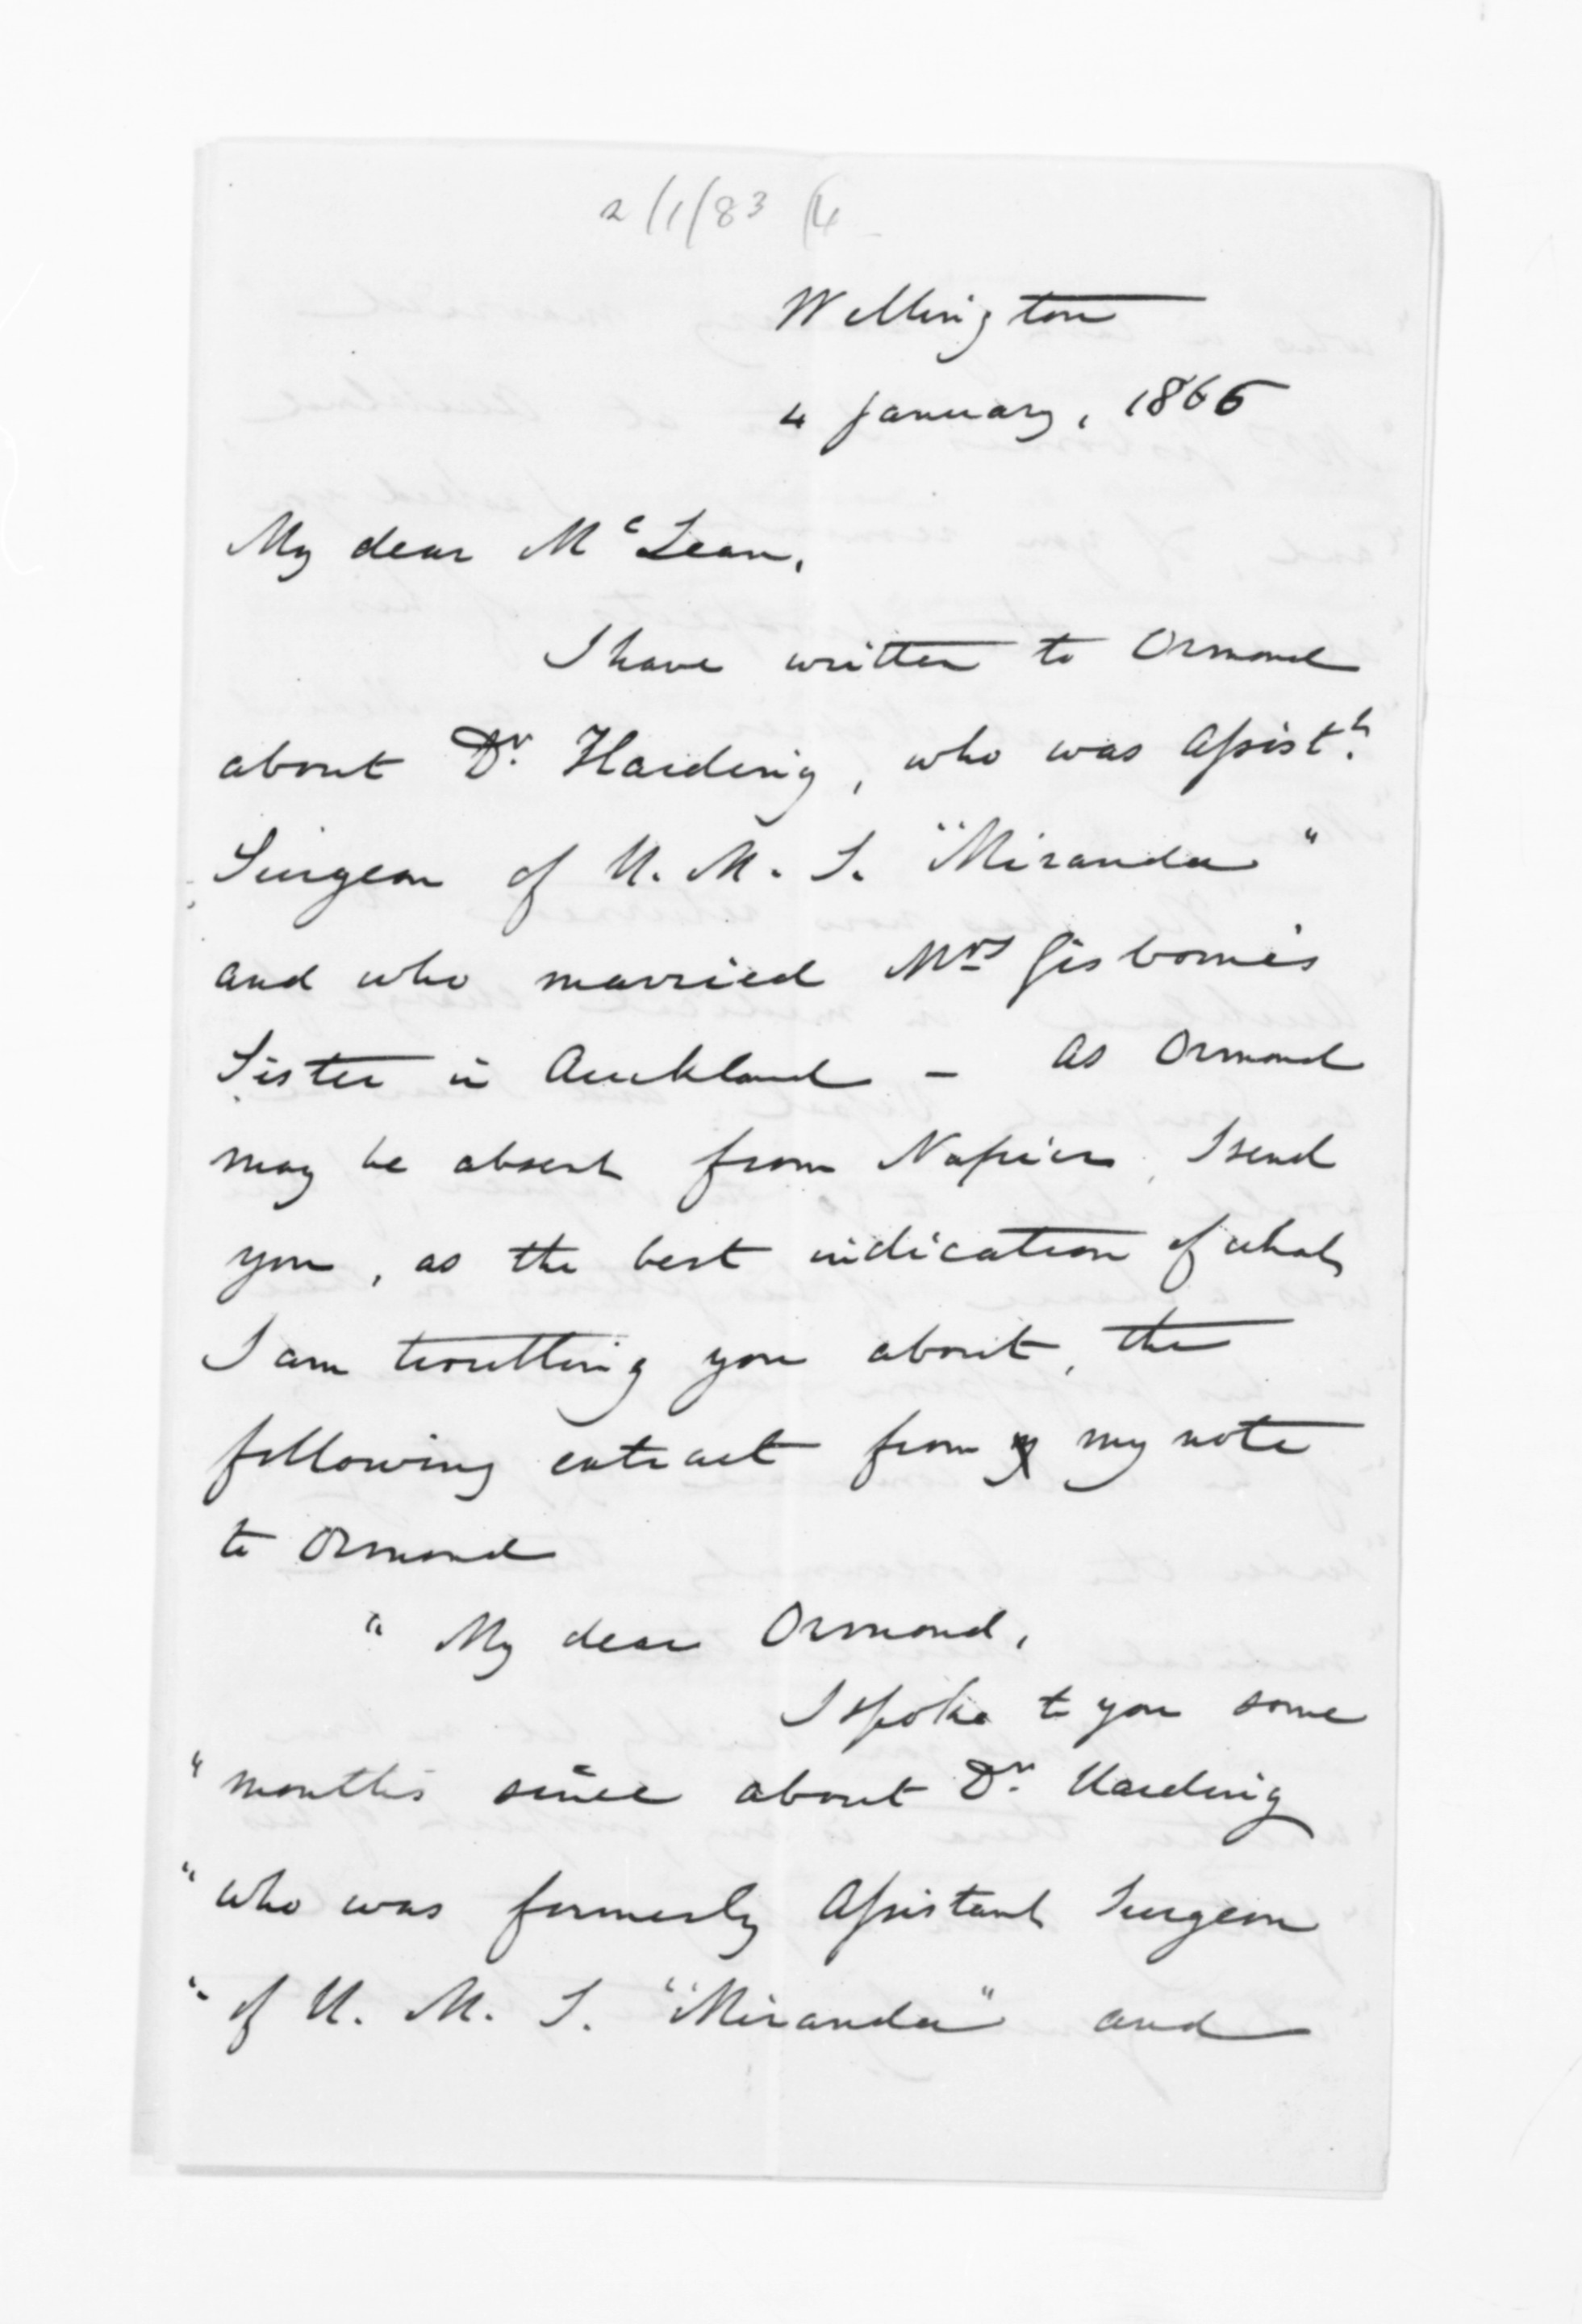 2/1/83 (4
Wellington
4 January, 1866
My dear McLean,
I have written to Ormond
about Dr. Harding, who was Assist.t
Surgeon of H. M. S. "Miranda"
and who married Mrs Gisborne's
Sister in Auckland - As Ormond
may be absent from Napier, I send
you, as the best indication of what
I am troubling you about, the
following extract from my note
to Ormond
" My dear Ormond,
I spoke to you some
" months since about Dr. Harding
" who was formerly Assistant Surgeon
" of H. M. S. "Miranda" and